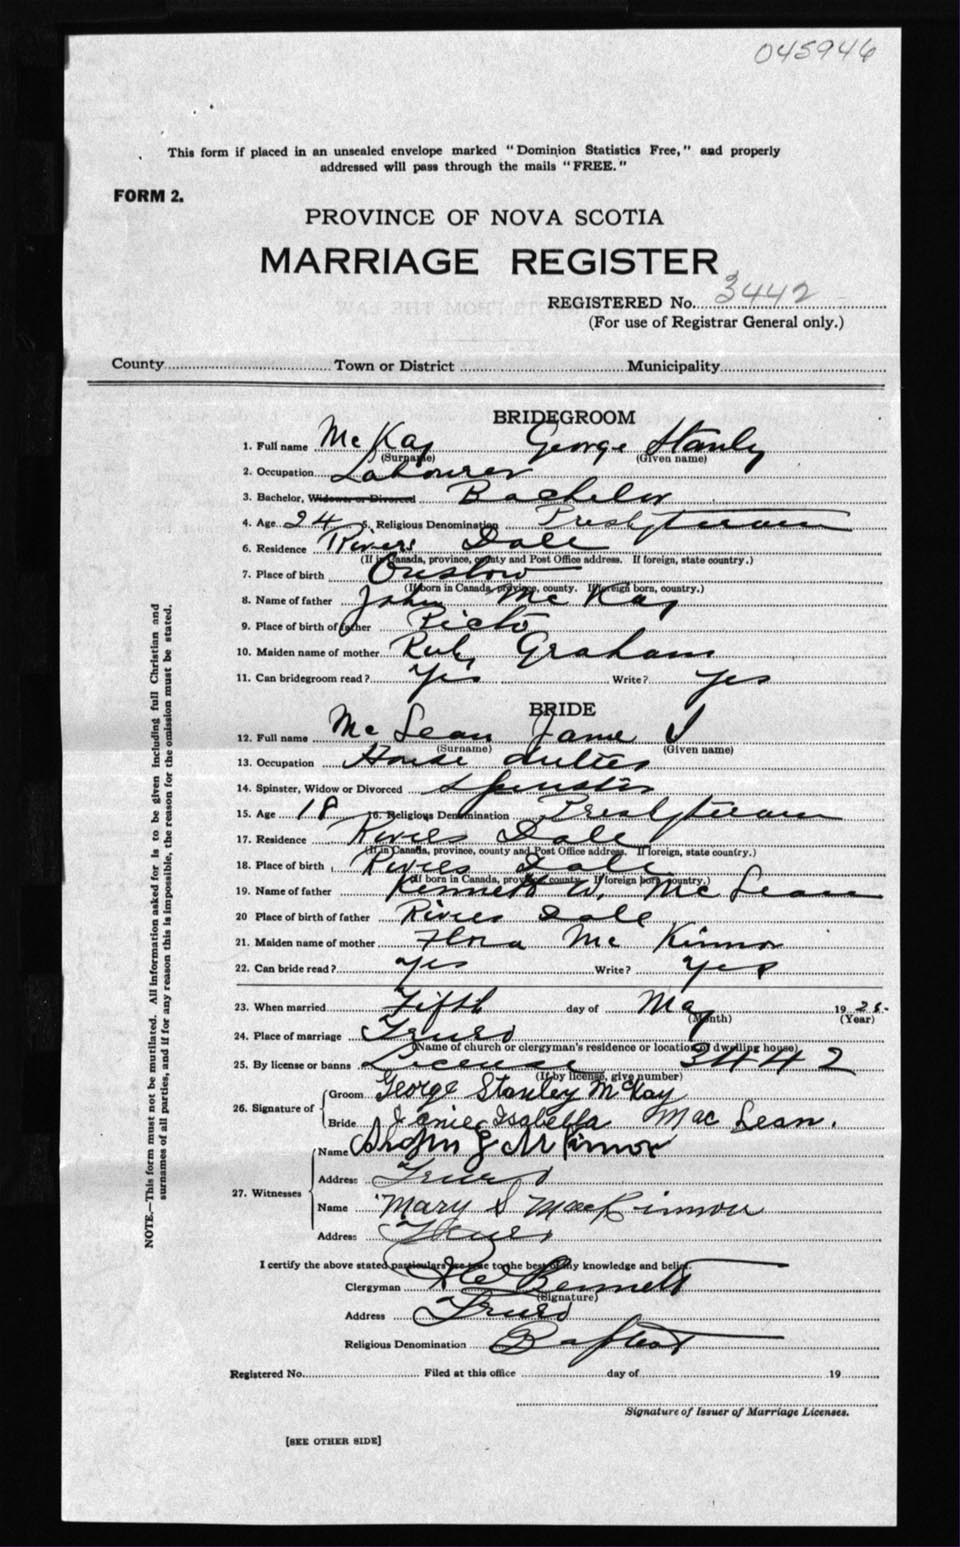 045946
This form if placed in an unsealed envelope marked "Dominion Statistics Free," and properly
addressed will pass through the mails "FREE."
FORM 2.
PROVINCE OF NOVA SCOTIA
MARRIAGE REGISTER
REGISTERED No. 3442
(For use of Registrar General only.)
County Town or District Municipality
BRIDEGROOM
1. Full name McKay George Stanly
(Surname) (Given name)
2. Occupation Labourer
3. Bachelor, Widower or Divorced Bachelor
4. Age 24 5. Religious Denomination Presbyterian
6. Residence Rivers Dale
(If in Canada, province, county and Post Office address. If foreign, state country.)
7. Place of birth Onslow
(If born in Canada, province, county. If foreign born, country.)
8. Name of father John McKay
9. Place of birth of father Picto
10. Maiden name of mother Ruby Graham
11. Can bridegroom read? Yes Write? yes
BRIDE
12. Full name McLean Janie I
(Surname) (Given name)
13. Occupation House duties
14. Spinster, Widow or Divorced Spinster
15. Age 18 16. Religious Denomination Presbyterian
17. Residence Rivers Dale
(If in Canada, province, county and Post Office address. If foreign, state country.)
18. Place of birth Rivers Dale
(If born in Canada, province, county. If foreign born, country.)
19. Name of father Kennett W. McLean
20 Place of birth of father Rivers Dale
21. Maiden name of mother Flora McKinnon
22. Can bride read? yes Write? yes
23. When married Fifth day of May 19
(Month) (Year)
24. Place of marriage Truro
(Name of church or clergyman's residence or location of dwelling house)
25. By license or banns License 3442
(If by license, give number)
26. Signature of Groom George Stanley McKay
Bride Janie Isabella MacLean.
27. Witnesses
Name
Address Truro
Name Mary S MacKinnon
Address Truro
I certify the above stated particulars are true to the best of my knowledge and belief.
Clergyman Bennett
(Signature)
Address Truro
Religious Denomination Baptist
Registered No. Filed at this office day of 19
Signature of Issuer of Marriage Licenses.
[SEE OTHER SIDE]
NOTE.—This form must not be mutilated. All information asked for is to be given including full Christian and
surnames of all parties, and if for any reason this is impossible, the reason for the omission must be stated.